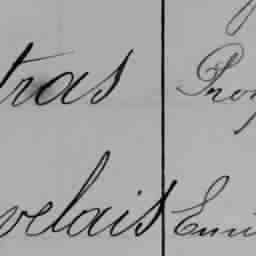 tras Prop
velais Emi